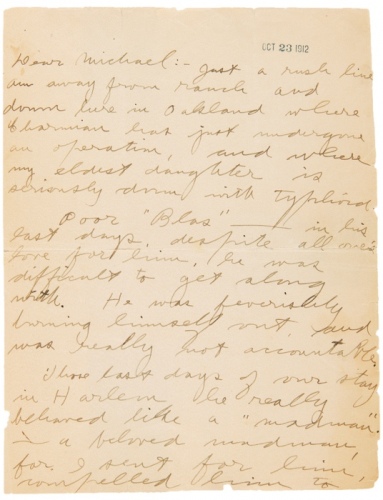 OCT 23 1912
Dear Michael:- Just a rush line
am away from ranch and
down here in Oakland where
Charmian has just undergone
an operation, and where
my eldest daughter is
seriously down with typhoid
Poor "Blas" — in his
last days, despite all one's
love for him, he was
difficult to get along
with. He was feverishly
burning himself out, and
was really not accountable.
Those last days of our stay
in Harlem he really
behaved like a "madman"
— a beloved madman,
for I sent for him,
compelled him to